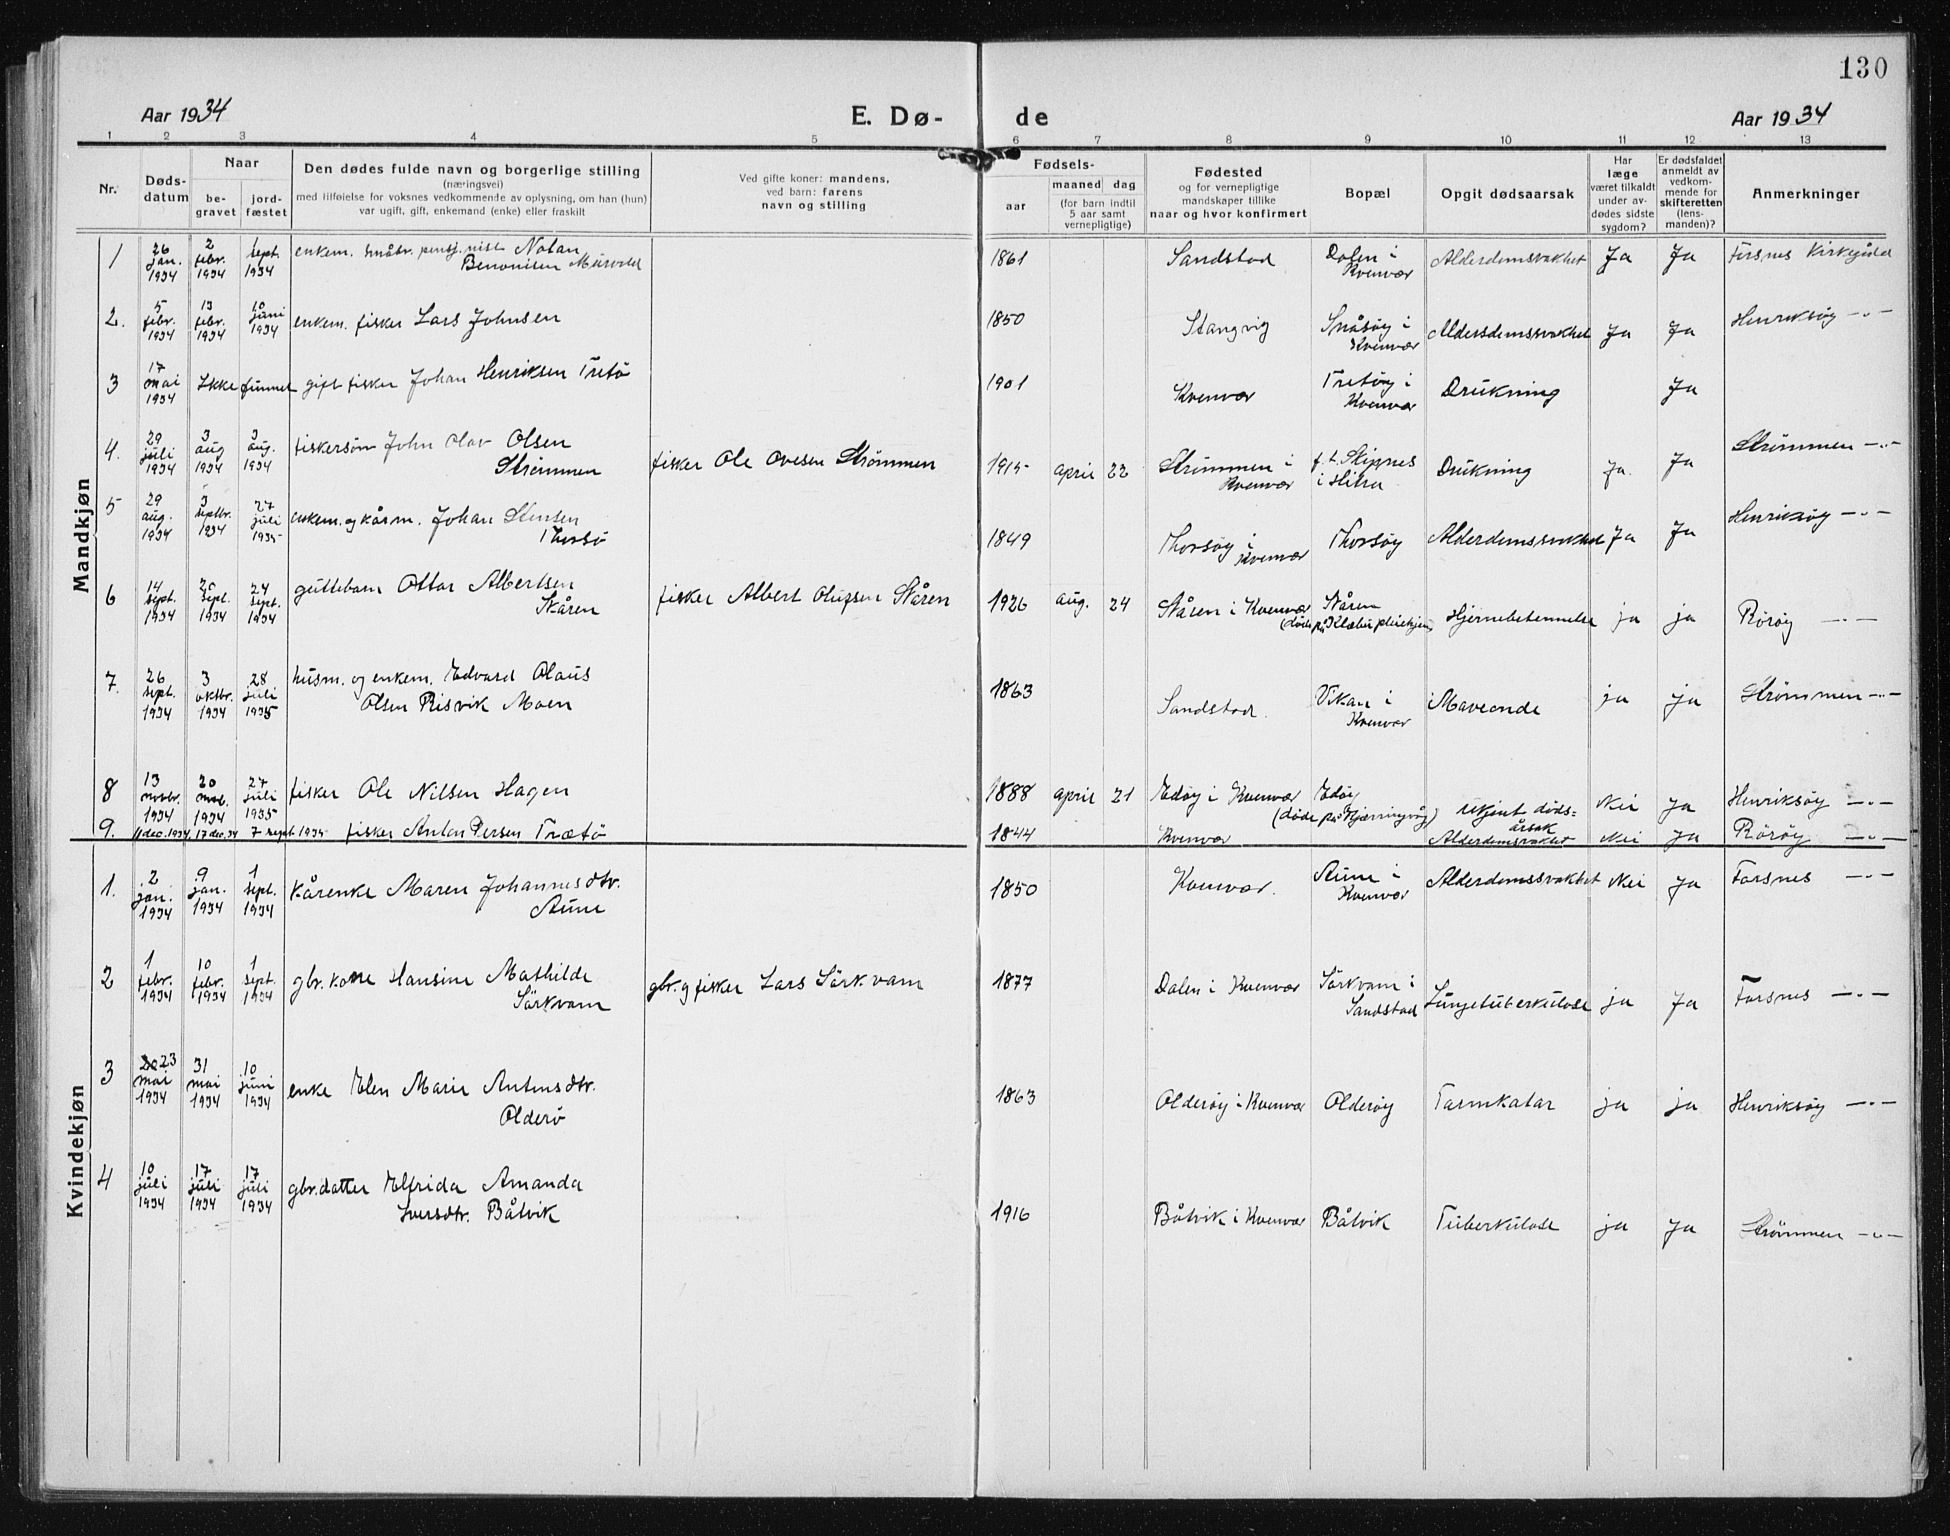 130
Aar 1934 E. Dø- de Aar 1934
1 2 3 4 5 6 7 8 9 10 11 12 13
Nr.
Døds-
datum
Naar
be-
gravet
jord-
fæstet
Den dødes fulde navn og borgerlige stilling
(næringsvei)
med tilføielse for voksnes vedkommende av oplysning, om han (hun)
var ugift, gift, enkemand (enke) eller fraskilt
Ved gifte koner: mandens,
ved barn: farens
navn og stilling
Fødsels-
aar
maaned dag
(for barn indtil
5 aar samt
vernepligtige)
Fødested
og for vernepligtige
mandskaper tillike
naar og hvor konfirmert
Bopæl
Opgit dødsaarsak
Har
læge
været tilkaldt
under av-
dødes sidste
sygdom?
Er dødsfaldet
anmeldt av
vedkom-
mende for
skifteretten
(lens-
manden)?
Anmerkninger
Mandkjøn
1 26 jan. 1934 2 febr. 1934 1 sept. 1934 enkem. småbr. Notan
Benonisen 1861 Sandstad Dalen i Kvenvær Alderdomsvakhet Ja Ja Forsnes Kirkegård
2. 5 febr. 1934 13 febr. 1934 10 juni 1934 enkem. fisker Lars Johnsen 1850 Stangvig Småsøy i Kvenvær Aldersdomssvakhet Ja Ja Henriksøy -"-
3 17 mai 1934 Ikke funnet gift fisker Johan Henriksen Tretø 1901 Kvenvær Tretøy i Kvenvær Drukning Ja
4. 29 juli 1934 3 aug 1934 3 aug. 1934 fiskersøn John Olav Olsen
Strømmen fisker Ole Ovesen Strømmen 1915 april 22 Strømmen i Kvenvær f.t. Skipnes i Hitra Drukning Ja Ja Strømmen -"-
5 29 aug. 1934 3 septbr. 1934 27 juli 1935 enkem. og kårm. Johan Stensen
Thorsø 1849 Thorsøy i Kvenvær Thorsøy Alderdomssvakhet Ja Ja Henriksøy -"-
6 14 sept. 1934 24 sept. 1934 guttebarn Ottar Albertsen
Skåren fisker Albert Olufsen Skåren 1926 aug. 24 Skåren i Kvenvær Skåren
(døde på Klæbu pleiehjem) Hjernebetennelse ja ja Rörøy -"-
7. 26 sept. 1934 3 oktbr. 1934 28 juli 1935 husm. og enkem. Edvard Olaus
Olsen Risvik Moen 1863 Sandstad. Vikan i Kvenvær Maveonde ja ja Strømmen -"-
8 13 novbr. 1934 20 nov. 1934 27 juli 1935 fisker Ole Nilsen Hagen 1888 april 21 Edøy i Kvenvær Edøy
(døde på Kjerringvåg) ukjent døds-
årsak Nei Ja Henriksøy -"-
9. 11 dec. 1934 17 dec. 34 7 sept 1935 fisker Anton Persen Trætø 1844 Kvenvær Alderdomsvakhet Nei Ja Rörøy -"-
Kvindekjøn
1. 2 jan. 1934 9 jan. 1934 1 sept. 1934 kårenke Maren Johannesdtr.
Aune 1850 Kvenvær. Aune i Kvenvær Alderdomssvakhet Nei Ja Forsnes -"-
2 1 febr. 1934 10 febr. 1934 1 sept. 1934 gbr. kone Hansine Mathilde
Sørkvam gbr. og fisker Lars Sørkvam 1877 Dalen i Kvenvær Sørkvam i Sandstad Lungetuberkulose ja Ja Forsnes -"-
3 23 mai 1934 31 mai 1934 10 juni 1934 enke Elen Marie Antonsdtr.
Olderø 1863 Olderøy i Kvenvær Olderøy Tarmkatar ja ja Henriksøy -"-
4 10 juli 1934 17 juli 1934 17 juli 1934 gbr. datter Elfrida Amanda
Iversdtr. Båtvik 1916 Båtvik i Kvenvær Båtvik Tuberkulose ja Ja Strømmen -"-